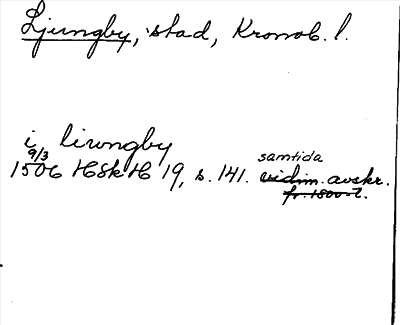 Ljungby, stad, Kronob. l.
i liwngby
9/3
1506 HSkH 19, s. 141. samtida vidim. avskr.
fr. 1800-t.